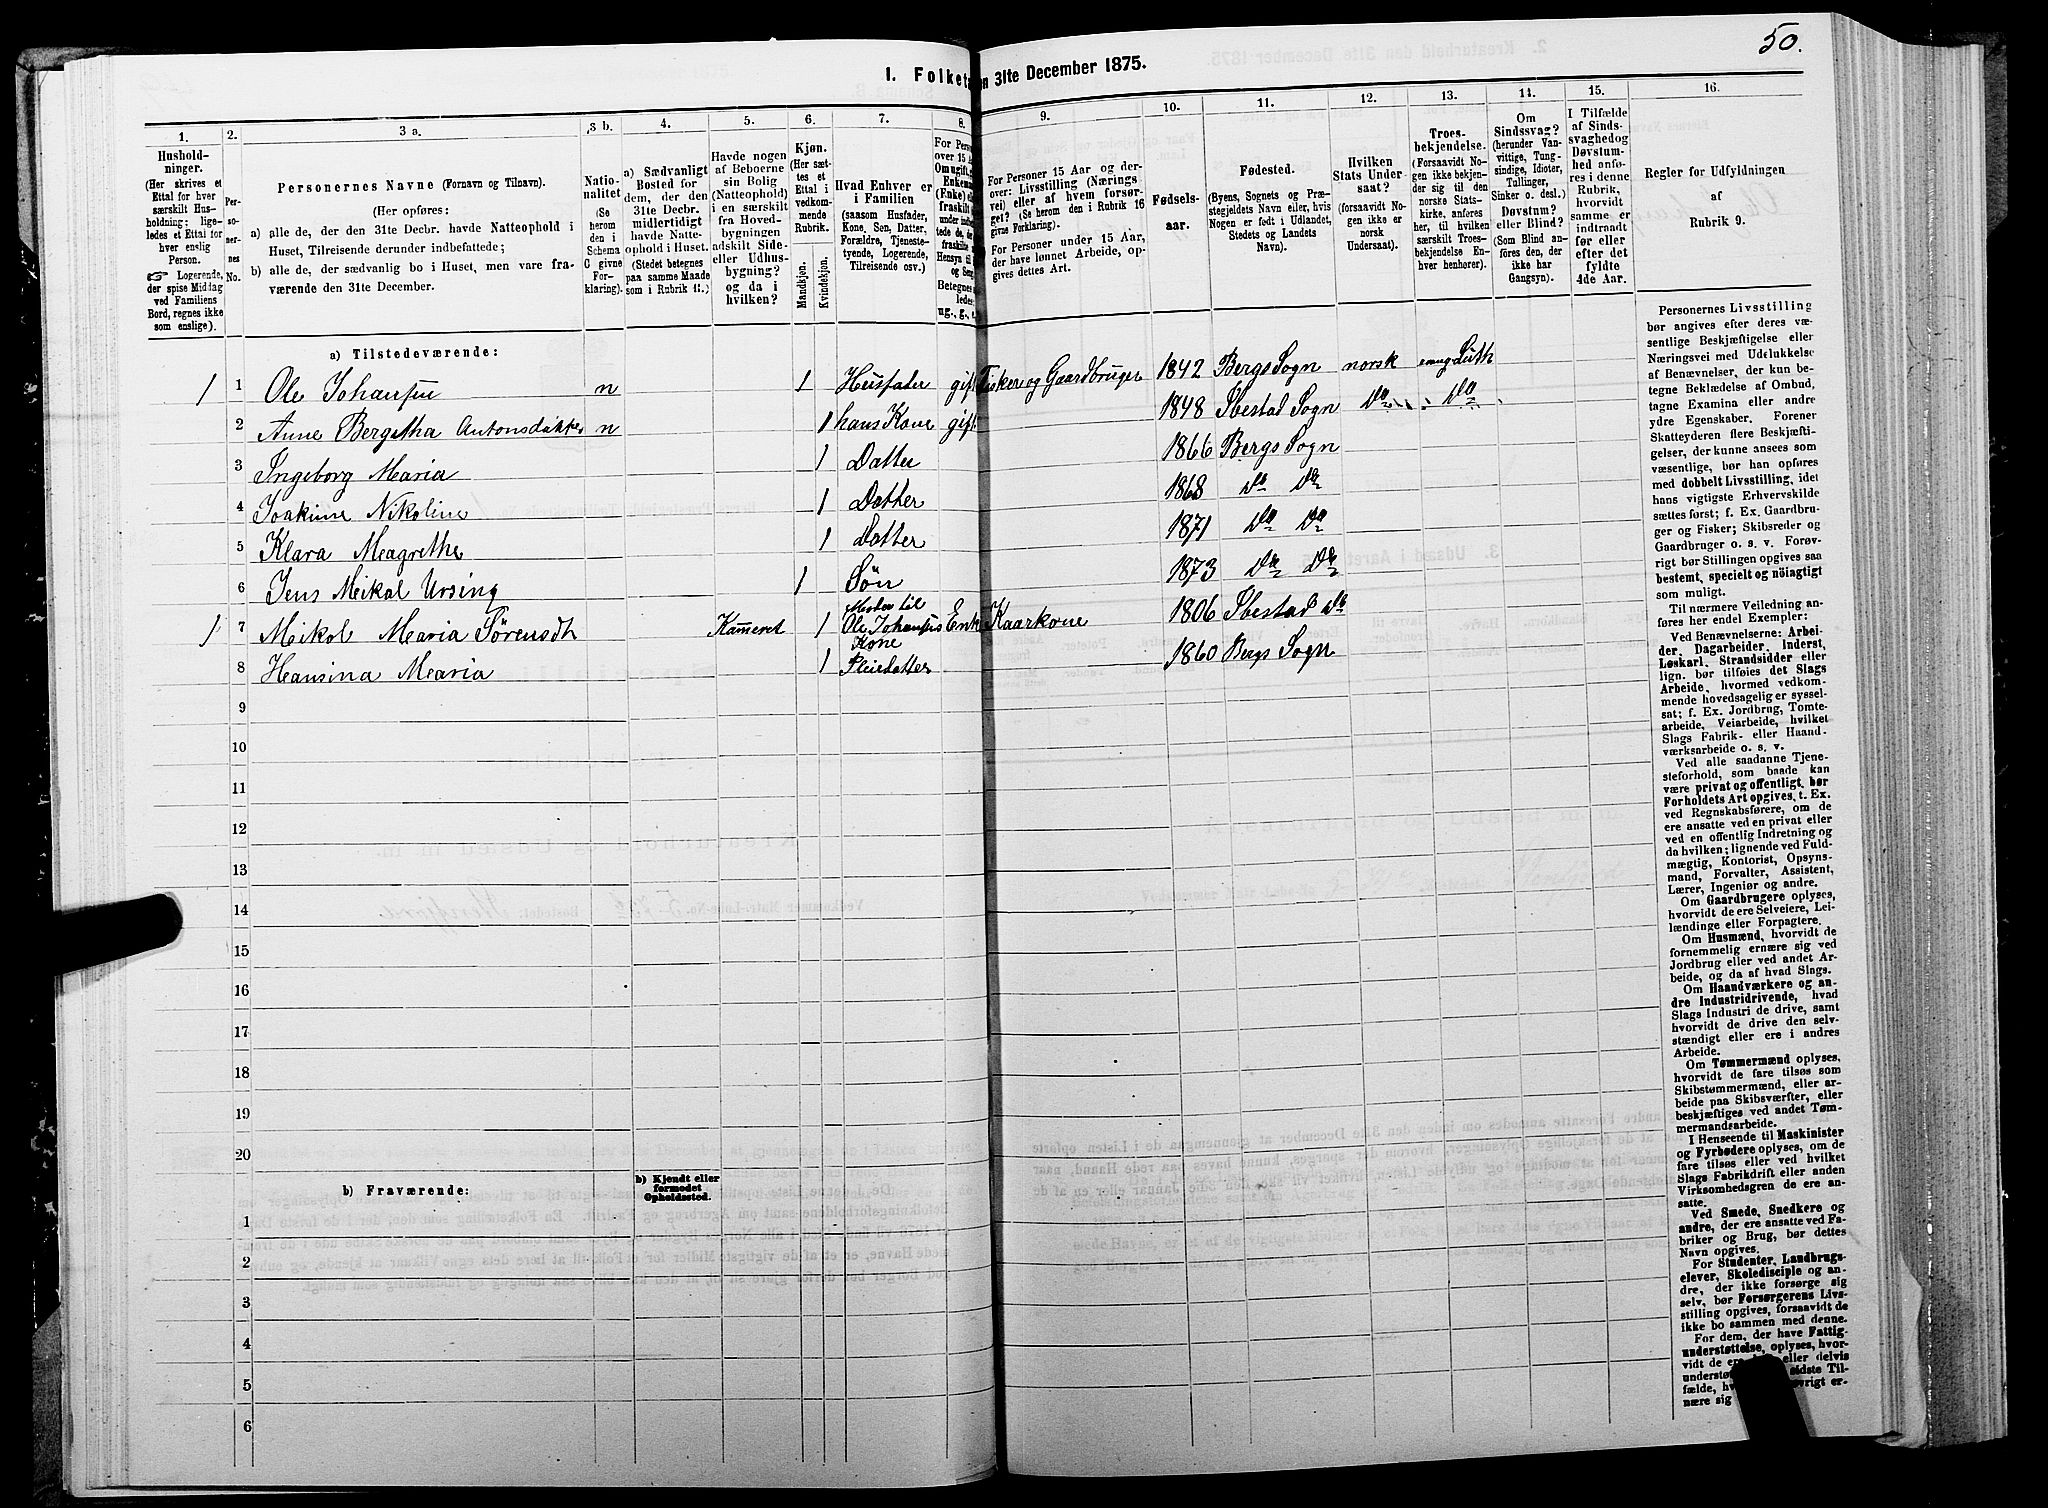 50.
1. Folketæ
n 31te December 1875.
1. 2. 3 a. 3 b. 4. 5. 6. 7. 8. 9. 10. 11. 12. 13. 14. 15. 16.
Hushold-
ninger.
(Her skrives et
Ettal for hver
særskilt Hus-
holdning: lige-
ledes et Ettal for
hver enslig
Person.
☞ Logerende,
der spise Middag
ved Familiens
Bord, regnes ikke
som enslige).
Per-
so-
ner-
nes
No.
Personernes Navne (Fornavn og Tilnavn).
(Her opføres:
a) alle de, der den 31te Decbr. havde Natteophold i
Huset, Tilreisende derunder indbefattede;
b) alle de, der sædvanlig bo i Huset, men vare fra-
værende den 31te December.
Natio-
nalitet
(Se
herom
den i
Schema
C givne
For-
klaring).
a) Sædvanligt
Bosted for
dem, der den
31te Decbr.
midlertidigt
havde Natte-
ophold i Huset.
(Stedet betegnes
paa samme Maade
som i Rubrik 11.)
Havde nogen
af Beboerne
sin Bolig
(Natteophold)
i en særskilt
fra Hoved-
bygningen
adskilt Side-
eller Udhus-
bygning?
og da i
hvilken?
Kjøn.
(Her sæt-
tes et
Ettal i
vedkom-
mende
Rubrik.
Mandkjøn.
Kvindekjøn.
Hvad Enhver er
i Familien
(saasom Husfader,
Kone, Søn, Datter,
Forældre, Tjeneste-
tyende, Logerende,
Tilreisende osv.)
For Person
over 15 A
Om ugift, g
Enkema
(Enke) el
fraskilt
For Personer 15 Aar og der-
over: Livsstilling (Nærings-
vei) eller af hvem forsør-
get? (Se herom den i Rubrik 16
givne Forklaring).
For Personer under 15 Aar,
der have lønnet Arbeide, op-
gives dettes Art.
Fødsels-
aar.
Fødested.
(Byens, Sognets og Præ-
stegjeldets Navn eller, hvis
Nogen er født i Udlandet,
Stedets og Landets
Navn).
Hvilken
Stats Under-
saat?
(forsaavidt No-
gen ikke er
norsk
Undersaat).
Troes-
bekjendelse.
(Forsaavidt No-
gen ikke bekjen-
der sig til den
norske Stats-
kirke, anføres
her, til hvilken
særskilt Troes-
bekjendelse En-
hver henhører).
Om
Sindssvag?
(herunder Van-
vittige, Tung-
sindige, Idioter,
Tullinger,
Sinker o. desl.)
Døvstum?
eller Blind?
(Som Blind an-
føres den, der
ikke har
Gangsyn).
I Tilfælde
af Sinds-
svaghed og
Døvstum-
hed anfø-
res i denne
Rubrik,
hvorvidt
samme er
indtraadt
før eller
efter det
fyldte
4de Aar.
Regler for Udfyldningen
af
Rubrik 9.
a) Tilstedeværende:
1 1 Ole Johansen n 1 Husfader gift Fisker og Gaardbruger 1842 Bergs Sogn norsk evang Luth
2 Anne Bergitha Antonsdatter n 1 hans Kone gift 1848 Ibestad Sogn Do Do
3 Ingeborg Maria 1 Datter 1866 Bergs Sogn
4 Joakime Nikoline 1 Datter 1868 Do Do
5 Klara Magrethe 1 Datter 1871 Do Do
6 Jens Mikal Ursing 1 Søn 1873 Do Do
1 7 Mikol Maria Sörensdt Kammeret 1 Moder til Ole Johansens Kone Enke Kaarkone 1806 Ibestad Do
8 Hansina Maria 1 Pleiedatter 1860 Bergs Sogn
9
10
11
12
13
14
15
16
17
18
19
20
b) Fraværende:
b) Kjendt eller
formodet
Opholdssted.
1
2
3
4
5
6
Personernes Livsstilling
bør angives efter deres væ-
sentlige Beskjæftigelse eller
Næringsvei med Udelukkelse
af Benævnelser, der kun be-
tegne Beklædelse af Ombud,
tagne Examina eller andre
ydre Egenskaber. Forener
Skatteyderen flere Beskjæfti-
gelser, der kunne ansees som
væsentlige, bør han opføres
med dobbelt Livsstilling, idet
hans vigtigste Erhvervskilde
sættes først; f. Ex. Gaardbru-
ger og Fisker; Skibsreder og
Gaardbruger o. s. v. Forøv-
rigt bør Stillingen opgives saa
bestemt, specielt og nöiagtigt
som muligt.
Til nærmere Veiledning an-
føres her endel Exempler:
Ved Benævnelserne: Arbei-
der, Dagarbeider, Inderst,
Løskarl, Strandsidder eller
lign. bør tilføies det Slags
Arbeide, hvormed vedkom-
mende hovedsagelig er syssel-
sat; f. Ex. Jordbrug, Tomte-
arbeide, Veiarbeide, hvilket
Slags Fabrik- eller Haand-
værksarbeide o. s. v.
Ved alle saadanne Tjene-
steforhold, som baade kan
være privat og offentligt, bør
Forholdets Art opgives, t. Ex.
ved Regnskabsførere, om de
ere ansatte ved en privat eller
ved en offentlig Indretning og
da hvilken; lignende ved Fuld-
mægtig, Kontorist, Opsyns-
mand, Forvalter, Assistent,
Lærer, Ingeniør og andre.
Om Gaardbrugere oplyses,
hvorvidt de ere Selveiere, Lei-
lændinge eller Forpagtere.
Om Husmænd, hvorvidt de
fornemmelig ernære sig ved
Jordbrug eller ved andet Ar-
beide, og da af hvad Slags.
Om Haandværkere og an-
dre Industridrivende, hvad
Slags Industri de drive, samt
hvorvidt de drive den selv-
stændigt eller ere i andres
Arbeide.
Om Tømmermænd oplyses,
hvorvidt de fare tilsøs som
Skibstømmermænd, eller ar-
beide paa Skibsværfter, eller
beskjæftiges ved andet Tøm-
mermandsarbeide.
I Henseende til Maskinister
og Fyrbødere oplyses, om de
fare tilsøs eller ved hvilket
Slags Fabrikdrift eller anden
Virksomhedsgren de ere an-
satte.
Ved Smede, Snedkere og
andre, der ere ansatte ved Fa-
briker og Brug, bør dettes
Navn opgives.
For Studenter, Landbrugs-
elever, Skoledisciple og an-
dre, der ikke forsørge sig
selv, bør Forsørgerens Livs-
stilling opgives, forsaavidt de
ikke bo sammen med denne.
For dem, der have Fattig-
understøttelse, oplyses, hvor-
vidt de